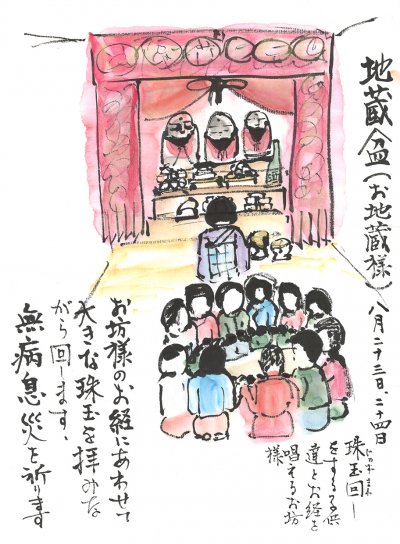 地蔵盆(お地蔵様)
八月二十三日、二十四日
珠玉回し
をする子供
達とお経を
唱えるお坊
様
お坊様のお経にあわせて
大きな珠玉を拝みな
がら回します、
無病息災を祈ります